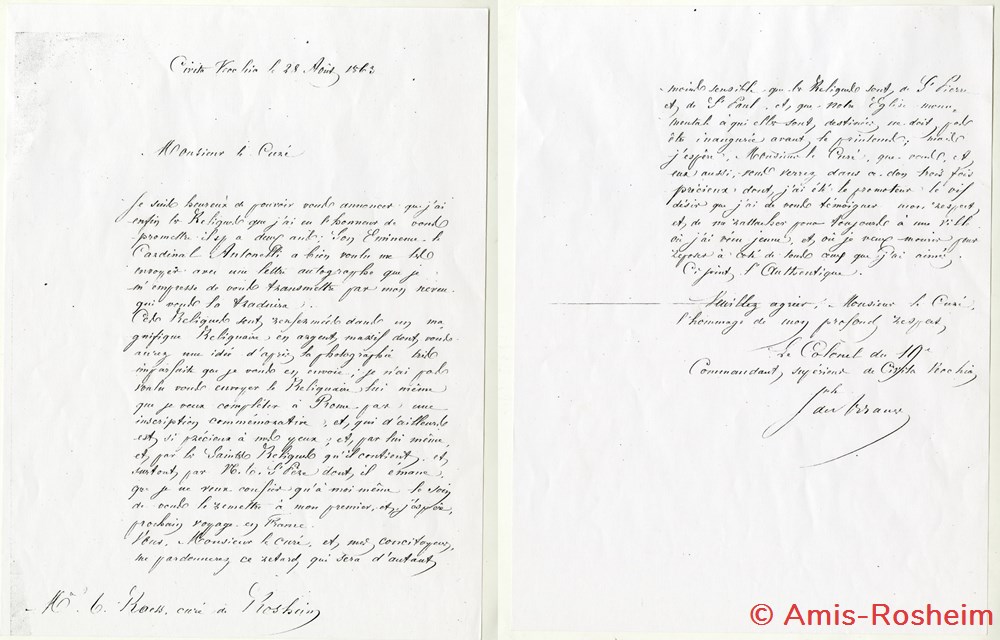 Civita Vecchia le 28 Août 1863
Monsieur le Curé
Je suis heureux de pouvoir vous annoncer que j'ai
enfin les Reliques que j'ai eu l'honneur de vous
promettre il y a deux ans. Son Eminence le
Cardinal Antonelli a bien voulu me les
envoyer avec une lettre autographe que je
m'empresse de vous transmettre par mon neveu
qui vous la traduira.
Ces Reliques sont renfermées dans un ma-
gnifique Reliquaire en argent massif dont vous
aurez une idée d'après la photographie très
imparfaite que je vous en envoie; je n'ai pas
voulu vous envoyer le Reliquaire lui même
que je veux compléter à Rome par une
inscription commémorative; et, qui d'ailleurs
est si précieux à mes yeux; et, par lui même,
et, par les Saintes Reliques qu'il contient, et,
surtout, par N. T. St Père dont, il émane,
que je ne veux confier qu'à moi même le soin
de vous le remettre à mon premier, et, j'espère,
prochain voyage en France.
Vous, Monsieur le curé, et, mes concitoyens,
me pardonnerez ce retard, qui sera d'autant
Mr. C. Kaess, curé de Rosheim
moins sensible que les Reliques sont, de St Pierre
et, de St Paul, et, que notre Eglise monu-
mentale à qui elles sont, destinées, ne doit pas
être inaugurée avant le printems; mais
j'espère, Monsieur le Curé, que vous, et,
eux aussi, vous verrez dans ce don trois fois
précieux dont, j'ai été le promoteur le vif
désir que j'ai de vous témoigner mon respect,
et, de me rattacher pour toujours à une ville
où j'ai vécu jeune, et, où je veux mourir pour
reposer à côté de tous ceux que j'ai aimés.
Ci joint l'Authentique.
Veuillez agréer, Monsieur le Curé,
l'hommage de mon profond respect,
Le Colonel du 19e
Commandant, supérieur de Civita Vecchia
© Amis-Rosheim